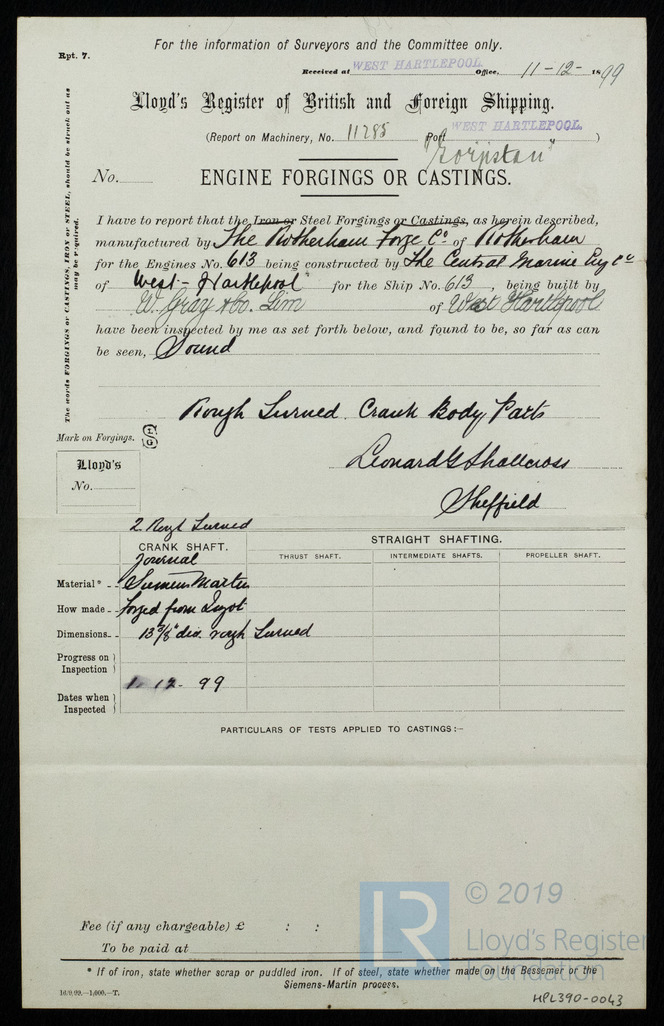 For the information of Surveyors and the Committee only.
Rpt. 7.
Received at WEST HARTLEPOOL Office, 11-12-1899
Lloyd's Register of British and Foreign Shipping.
(Report on Machinery, No. 11285 Port WEST HARTLEPOOL.)
No.
ENGINE FORGINGS OR CASTINGS.
The words FORGINGS or CASTINGS, IRON or STEEL, should be struck out as may be required.
I have to report that the Iron or Steel Forgings or Castings, as herein described,
manufactured by The Rotherham Forge Co. of Rotherham
for the Engines No. 613 being constructed by The Central Marine Eng Co
of West-Hartlepool for the Ship No. 613, being built by
W. Gray & Co. Lim of West Hartlepool
have been inspected by me as set forth below, and found to be, so far as can
be seen, Sound
Rough Turned Crank Body Parts
Mark on Forgings.
Lloyd's
No.
Leonard G Shallcross
Sheffield
2 Rough Turned
CRANK SHAFT.
Journal
STRAIGHT SHAFTING.
THRUST SHAFT. INTERMEDIATE SHAFTS. PROPELLER SHAFT.
Material* Siemens Martin
How made forged from Ingot
Dimensions 13 3/8" dia. rough Turned
Progress on Inspection
Dates when Inspected 1. 12. 99
PARTICULARS OF TESTS APPLIED TO CASTINGS:—
Fee (if any chargeable) £ : :
To be paid at
* If of iron, state whether scrap or puddled iron. If of steel, state whether made on the Bessemer or the
Siemens-Martin process.
HPL390-0043
LR © 2019
Lloyd's Register
Foundation